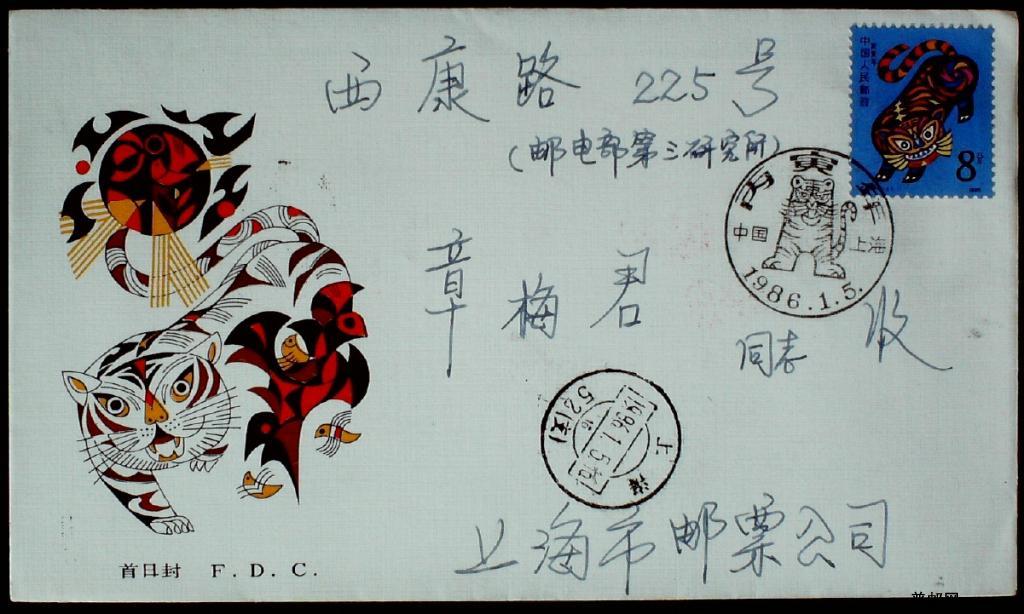 西康路 225号
(邮电部第三研究所)
中国人民邮政
8分
丙寅年
中国 上海
1986.1.5.
章梅君
同志 收
上海
1986.1.5
52(支)
上海市邮票公司
首日封 F. D. C.
普邮网